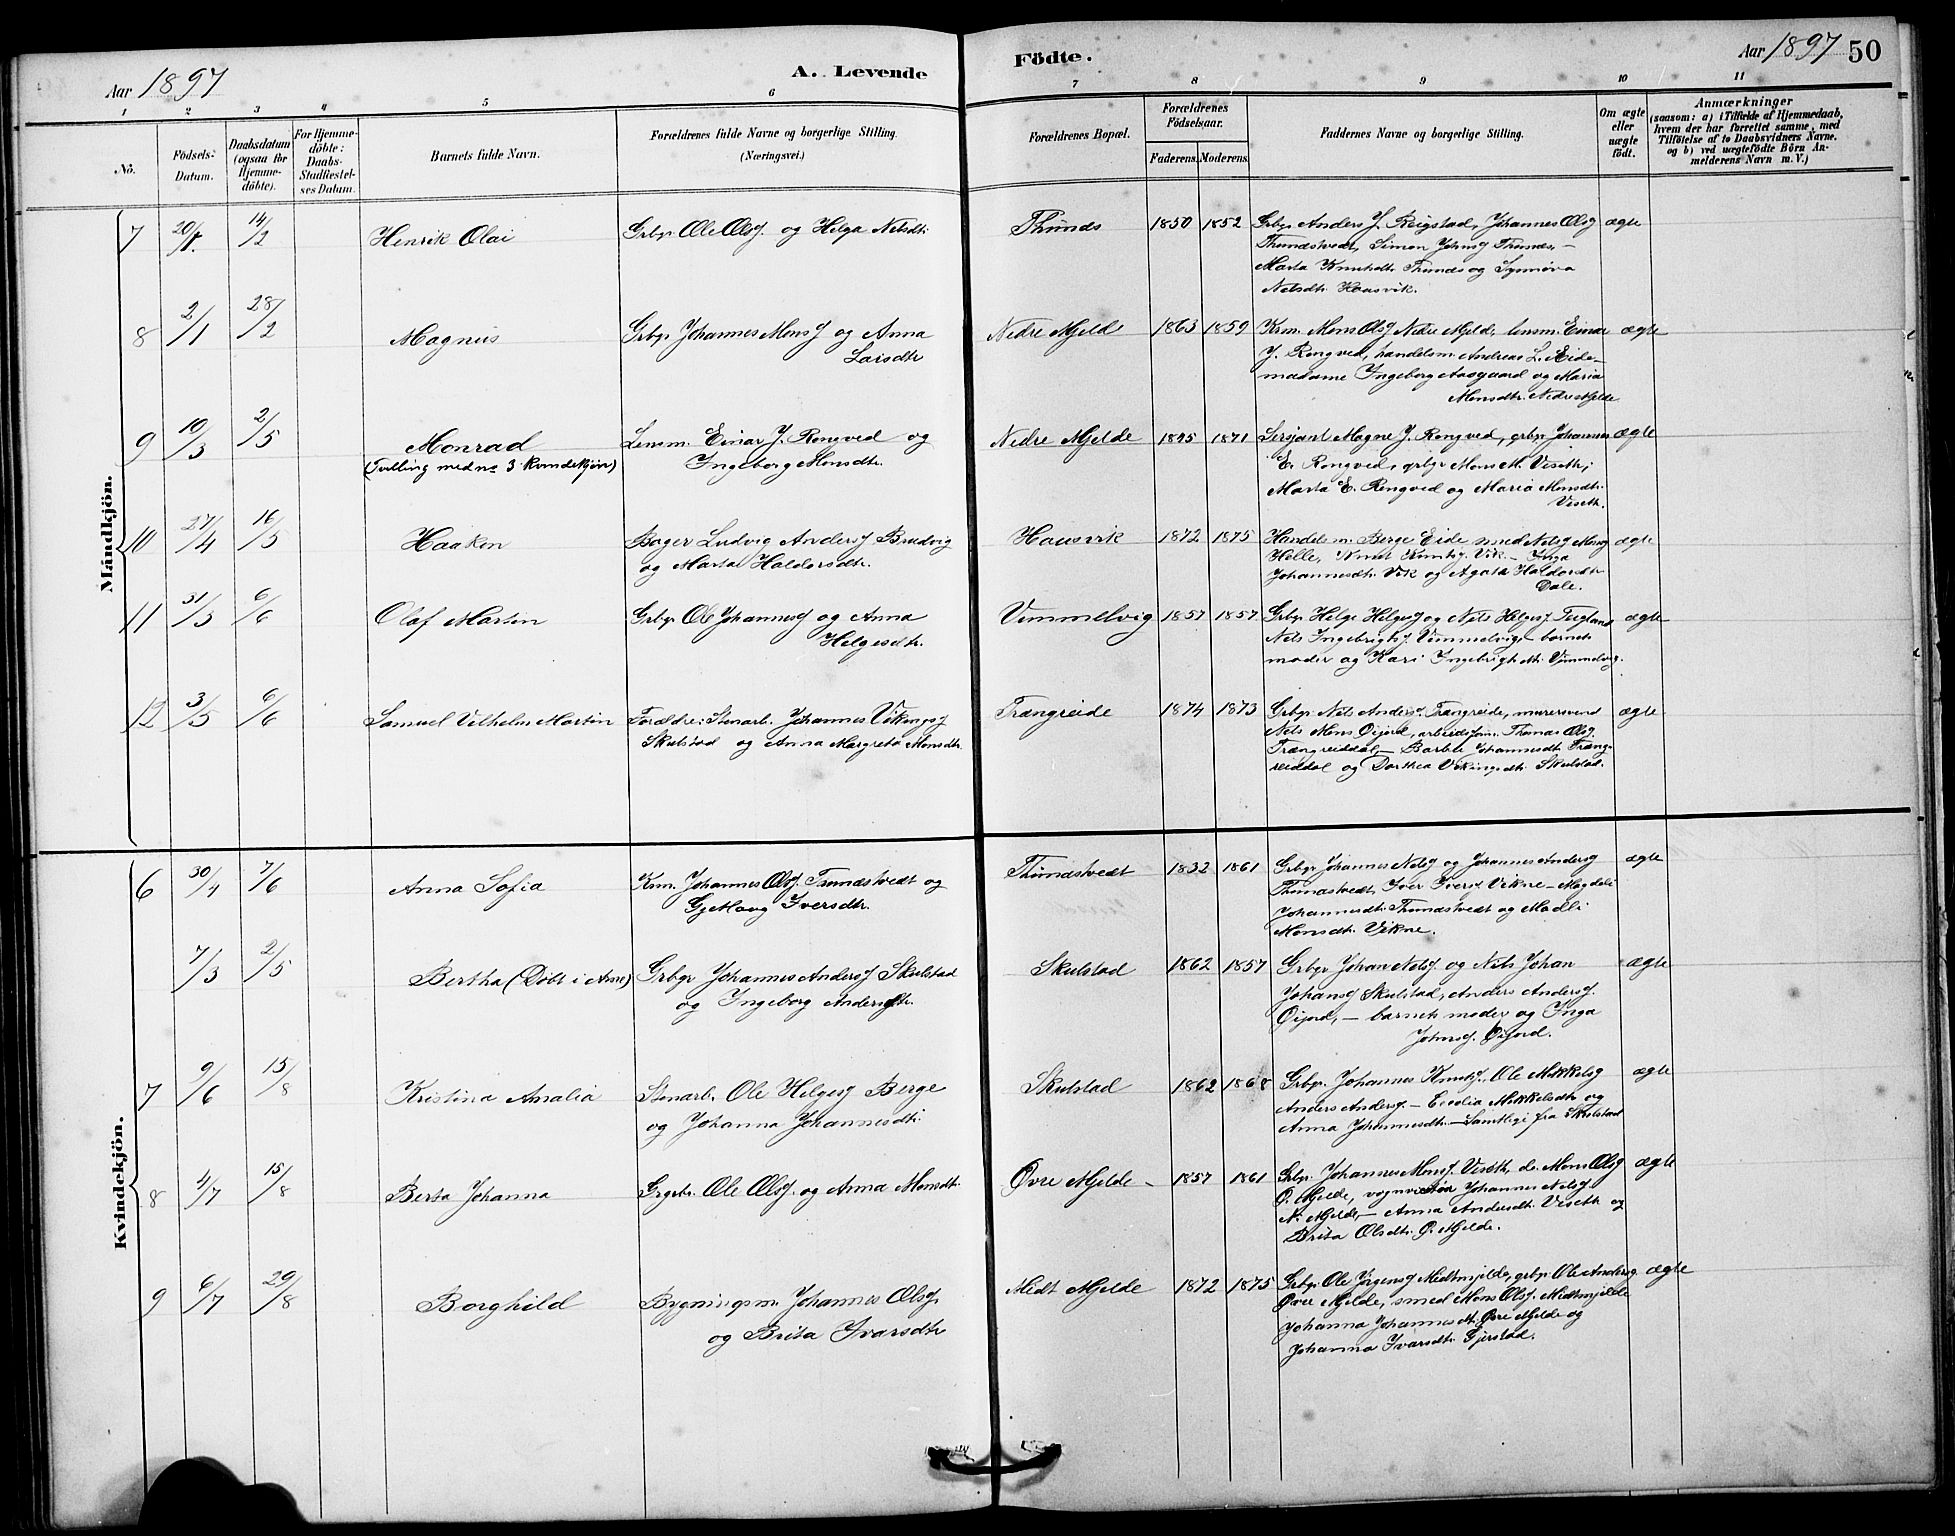 Aar 1897
A. Levende
Födte.
Aar 1897 50
1 2 3 4 5 6 7 8 9 10 11
No.
Födsels-
Datum.
Daabsdatum
(ogsaa for
Hjemme-
döbte).
For Hjemme-
döbte:
Daabs-
Stadfæstel-
ses Datum.
Barnets fulde Navn.
Forældrenes fulde Navne og borgerlige Stilling.
(Næringsvei.)
Forældrenes Bopæl.
Forældrenes
Födselsaar.
Faderens. Moderens.
Faddernes Navne og borgerlige Stilling.
Om ægte
eller
uægte
födt.
Anmærkninger
(saasom: a) i Tilfælde af Hjemmedaab,
hvem der har forrettet samme, med
Tilföielse af to Daabsvidners Navne.
og b) ved uægtefödte Börn An-
melderens Navn m. V.)
Mandkjön.
7 20/1 14/2 Henrik Olai Grbgr. Ole Olsf. og Helga Nelsdtr. Thunæs 1850 1852 Grbgr Anders J. Reigstad, Johannes Olsf ægte
Thunæstvedt, Simon Johnsf Thunæs, —
Marta Knutsdtr. Thunæs og Synnøva
Nelsdtr. Housvik.
8 2/1 28/2 Magnus Grbgr Johannes Monsf og Anna Nedre Mjelde 1863 1859 Krm. Mons Olsf Nedre Mjelde, lensm. Einar ægte
Larsdtr J. Rongved, handelsm. Andreas L. Eide—
madame Ingeborg Aasgaard og Maria
Monsdtr. Nedre Mjelde
9 10/3 2/5 Monrad Lensm. Einar J. Rongved og Nedre Mjelde 1871 Sersjant Magne J. Rongved, grbgr Johannes ægte
(Tvilling med no 3 kvindekjøn) Ingeborg Monsdtr. E. Rongved, grbgr Mons M. Viseth,
Marta E. Rongved og Maria Monsdtr.
Viseth.
10 27/4 16/5 Haakon Bager Ludvig Andersf Brudvig Housvik 1872 1875 Handelsm. Berge Eide smed Nels Mons ægte
og Marta Haldorsdtr. Helle, Knut Knutsf. Vik — Inga
Johannesdtr Vik og Agata Haldorsdtr
Dale.
11 31/3 6/6 Olaf Martin Grbgr Ole Johannesf og Anna Vimmelvig 1857 1857 Grbgr Helge Helgesf og Nels Helgesf ægte
Helgesdtr. Nels Ingebrigtsf. Vimmelvig, — barnets
moder og Kari Ingebrigtsdtr. Vimmelvig.
12 3/5 6/6 Samuel Vilhelm Martin Forældre: Stenarb. Johannes Vikingsf Trængreide 1874 1873 Grbgr. Nels Andersf. Trængreide, murersvend ægte
Skulstad og Anna Margreta Monsdtr. Nels Mons Øijord, arbeidsfm. Thomas Olsf
Trængreiddal, — Barble Johannesdtr. Træng-
reiddal og Dorthea Vikingsdtr. Skulstad.
Kvindekjön.
6 30/4 7/6 Anna Sofia Krm. Johannes Olsf. Tunæstvedt og Thunæstvedt 1832 1861 Grbgr Johannes Nelsf og Johannes Andersf ægte
Iversdtr. Thunæstvedt, Iver Iversf Vikne — Magdeli
Johannesdtr. Thunæstvedt og Madli
Monsdtr. Vikne.
7/3 2/5 Bertha (Døbt i Arne) Grbgr Johannes Andersf Skulstad Skulstad 1862 1857 Grbgr Johan Nelsf. og Nels Johan ægte
og Ingeborg Andersdtr. Johansf Skulstad, Anders Andersf.
Øijord, — barnets moder og Inga
Johnsf. Øijord.
7 9/6 15/8 Kristina Amalia Stenarb. Ole Helgesf Berge Skulstad 1862 1868 Grbgr. Johannes Knutsf. Ole Mikkelsf ægte
og Johanna Johannesdtr. Anders Andersf. — Mikkelsdtr og
Anna Johannesdtr. — Samtlige fra Skulstad
8 4/7 15/8 Berta Johanna Grgbr. Ole Olsf. og Anna Monsdtr. Øvre Mjelde — 1857 1861 Grbgr. Johannes Monsf. Viseth, do. Mons Olsf ægte
Ø. Mjelde, Johannes Nelsf
N. Mjelde, — Anna Andersdtr. Viseth og
Brita Olsdtr. Ø. Mjelde.
9 6/7 29/8 Borghild Bygningsm. Johannes Olsf. Midt Mjelde 1872 1875 Grbgr. Ole Jørgensf Midtmjelde, grbgr Ole Andersf ægte
og Brita Ivarsdtr Øvre Mjelde, smed Mons Olsf. Midtmjelde
Johanna Johannesdtr. Øvre Mjelde og
Johanna Ivarsdtr. Gjerstad.